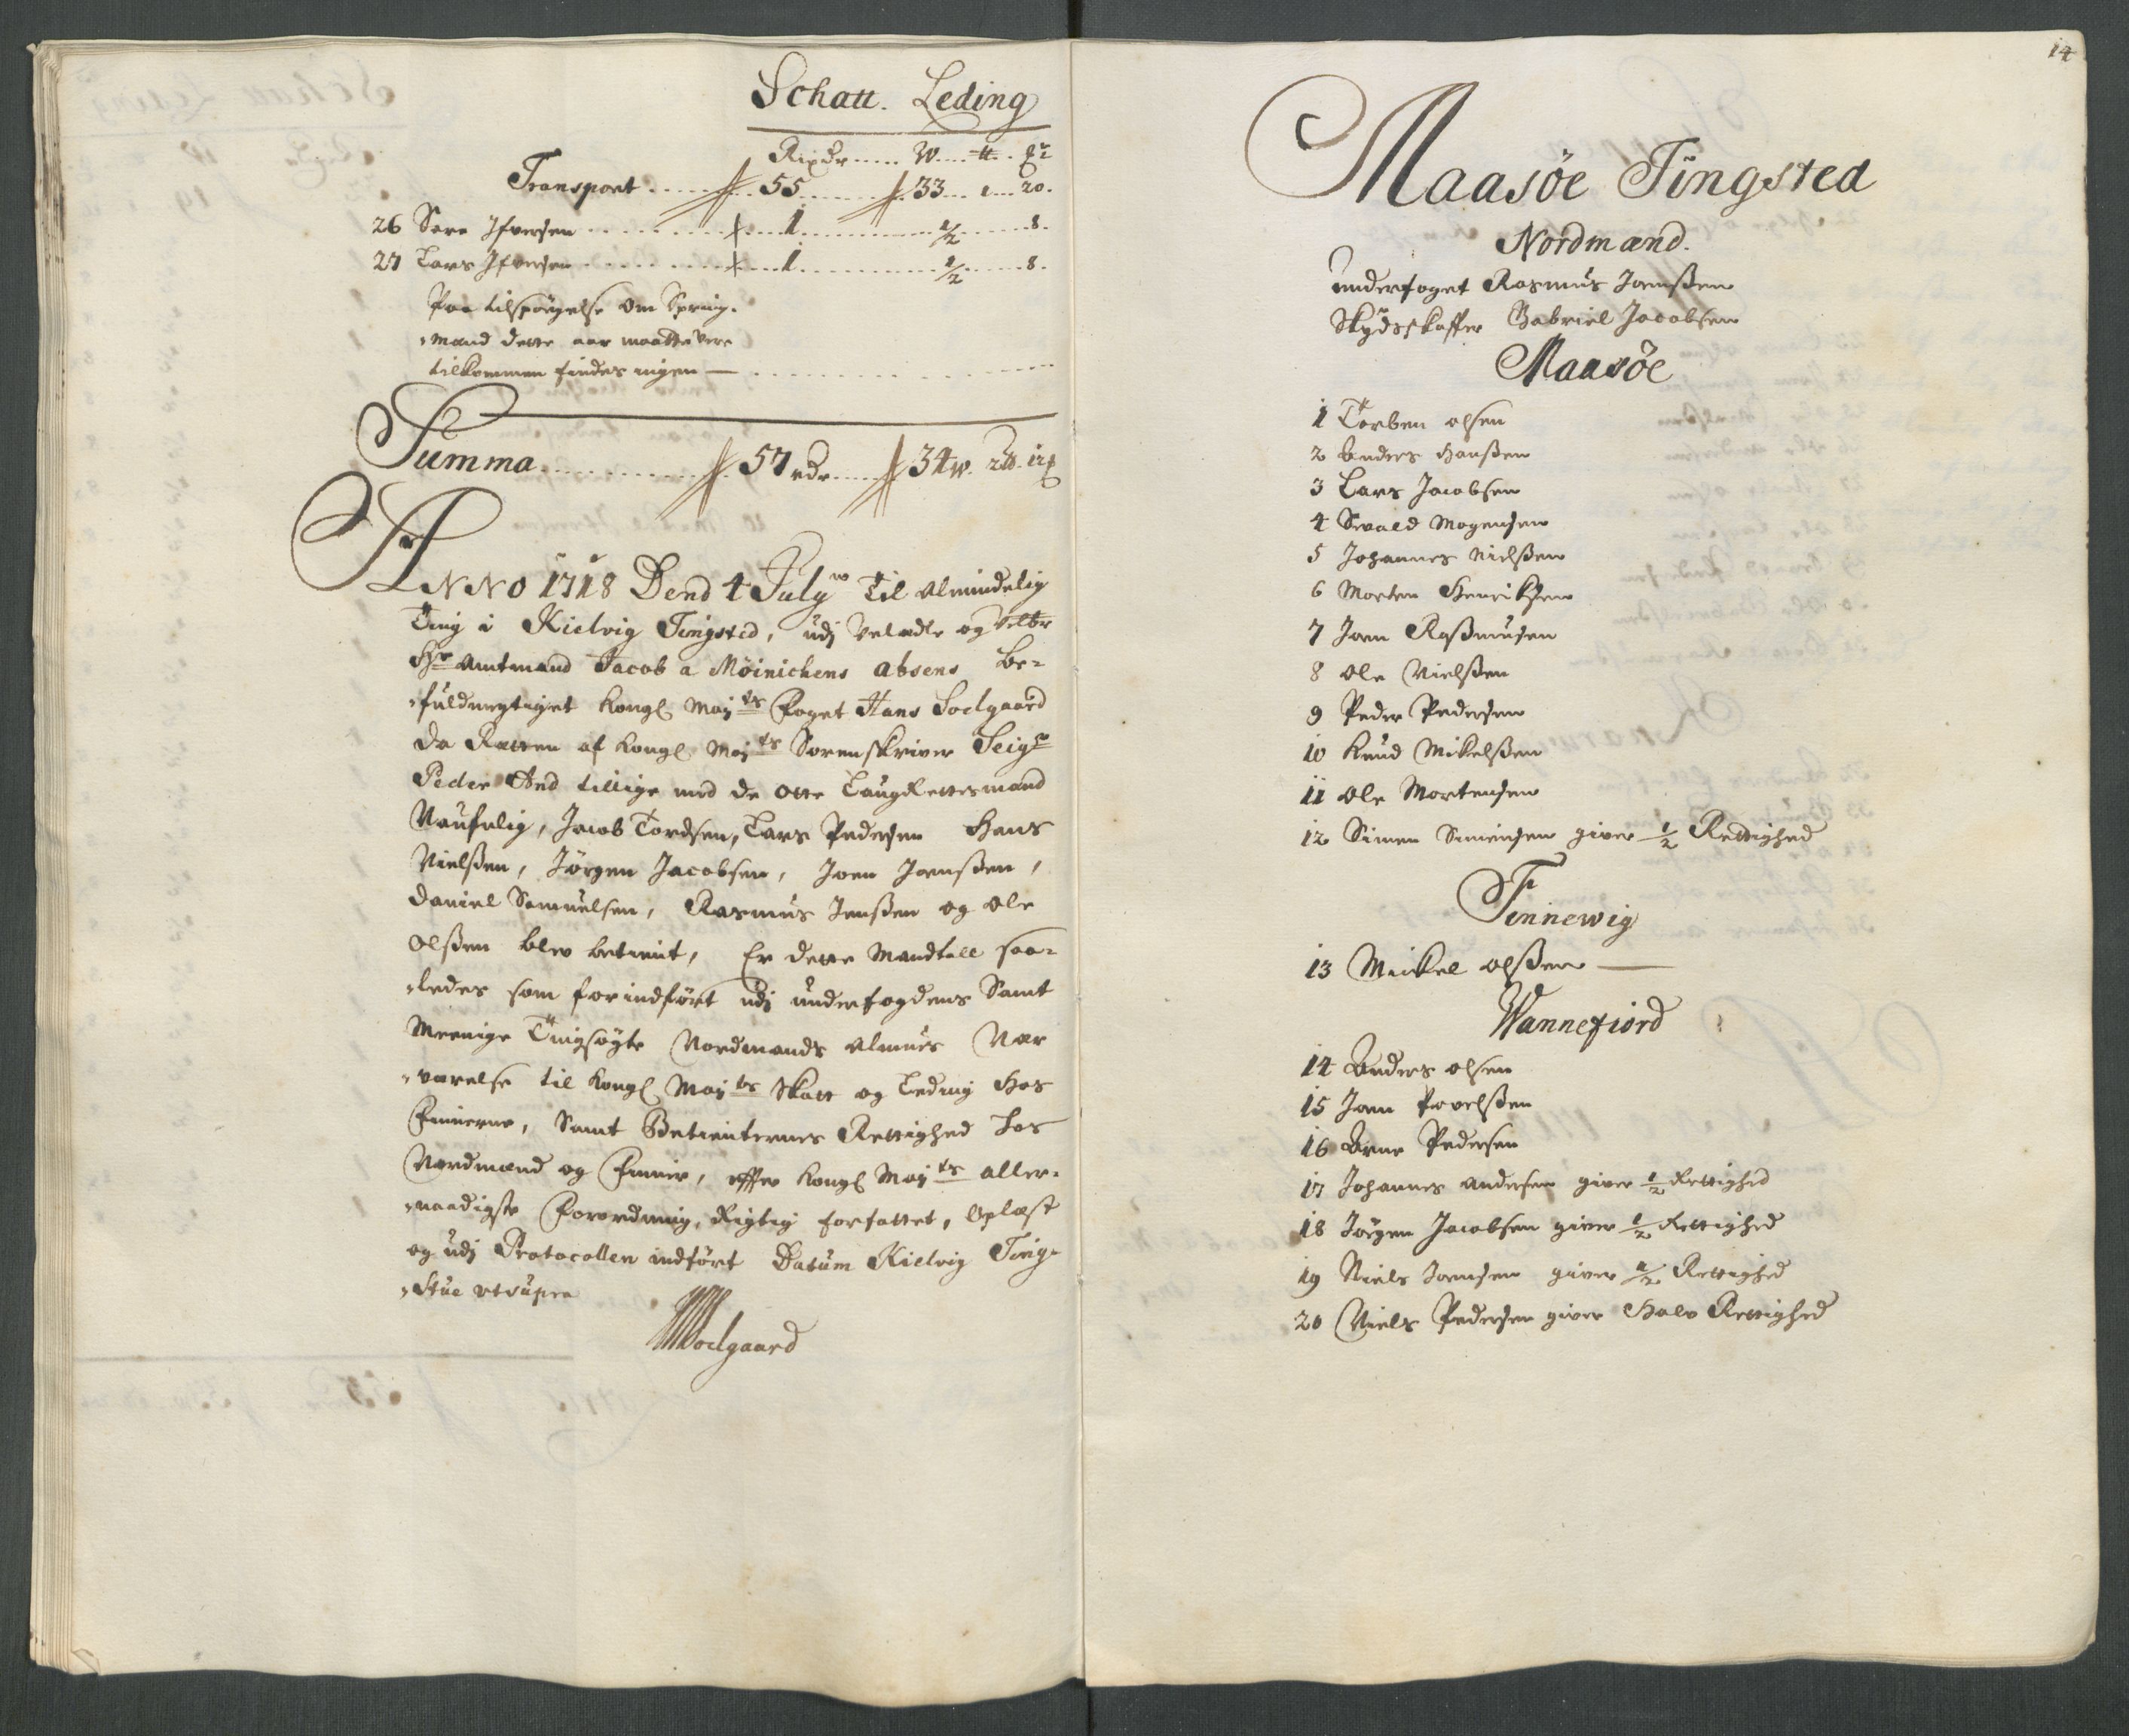 Schatt. Leding
Rixdr..... W.... ℔.. ʒr
Transport ........ 55 ......... 33... 1... 20.
26 Sara Ifversen ......... 1 ........... 1/2 ..... 8.
27 Lars Ifversen ......... 1 ........... 1/2 ..... 8.
Paa tilspørgelse om Spring-
mand dette aar maatte være
tilkommen findes ingen —
Summa ............ 57 rdr ..... 34 W. 2 ℔. 12
ANNO 1718 Dend 4 July Til Almindelig
Ting i Kielvig Tingsted, udj Velædle og Velbr
Hr Amtmand Jacob a Möinichens absens be=
fuldmegtiget Kongl Maj ts Foget Hans Soelgaard
da Retten af Kongl Maj ts Sorenskriver Seigr
Peder And tillige med de otte Laugrettesmænd
Naufnlig, Jacob Tordsen, Lars Pedersen Hans
Nielßen, Jörgen Jacobsen, Joen Joenßen,
Daniel Samuelsen, Rasmus Jenßen og Ole
Olßen blev betient, Er dette Mandtall saa=
ledes som forindført udj underfogdens Samt
Meenige Tingsøgte Nordmænds Almues Nær
værelse til Kongl Maj ts Skatt og Leding Hos
Finnerne, Samt Betienternes Rettighed hos
Nordmænd og Finner, efter Kongl Maj ts aller=
naadigste Forordning, Rigtig forfattet, Oplæst
og udj Protocollen indført Datum Kielvig Ting=
Stue ut supra
Soelgaard
14
Maasöe Tingsted
Nordmænd.
underfoget Rasmus Joenßen
Skydsskaffer Gabriel Jacobsen
Maasöe
1 Torben olsen
2 Anders Hanßen
3 Lars Jacobsen
4 Sivald Mogensen
5 Johannes Nielßen
6 Morten Henrikßen
7 Joen Raßmusen
8 Ole Nielßen
9 Peder Pedersen
10 Knud Mikelßen
11 Ole Mortensen
12 Simen Simensen giver 1/2 Rettighed
Finnewig
13 Mickel olßen —
Wannefiord
14 Anders olsen
15 Joen Povelßen
16 Arne Pedersen
17 Johannes Andersen giver 1/2 Rettighed
18 Jörgen Jacobsen giver 1/2 Rettighed
19 Niels Joensen giver 1/2 Rettighed
20 Niels Pedersen giver Halv Rettighed